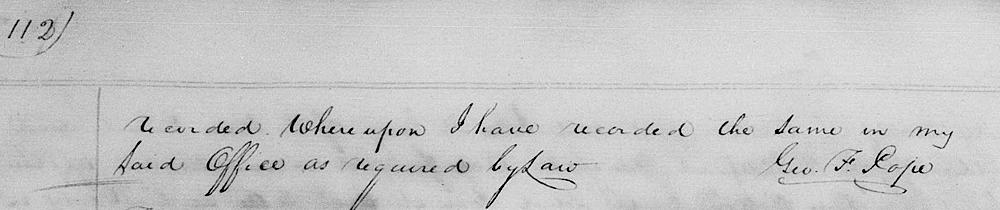 112)
recorded. Whereupon I have recorded the same in my
Said Office as required by Law Geo. F. Pope